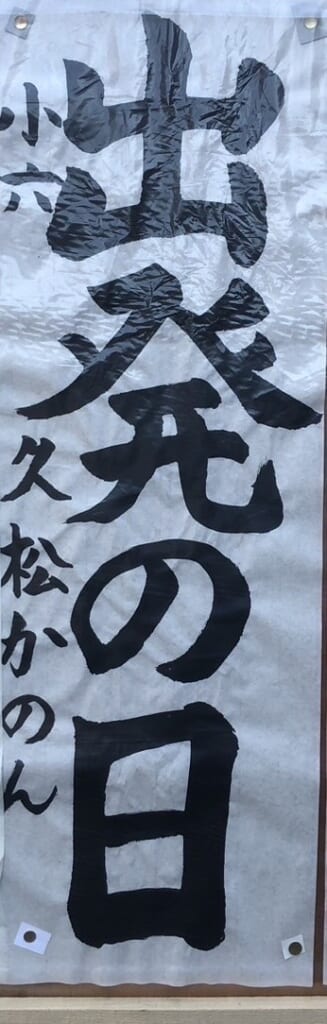 出発の日
小六
久松かのん